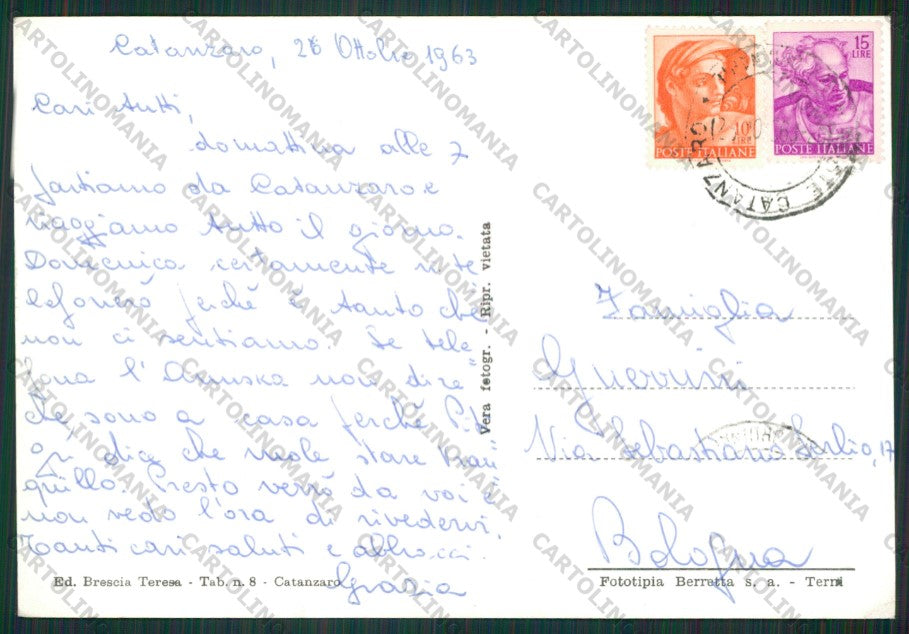 Catanzaro, 26 Ottobre 1963
Cari tutti,
domattina alle 7
partiamo da Catanzaro e
viaggiamo tutto il giorno.
Domenica certamente vi te
lefonerò perchè è tanto che
non ci sentiamo. Se tele=
fona l'Annuska non dire
che sono a casa perchè
dice che vuole stare tran
quillo. Presto verrò da voi e
non vedo l'ora di rivedervi.
Tanti cari saluti e abbracci.
Grazia
Ed. Brescia Teresa - Tab. n. 8 - Catanzaro
Vera fotogr. - Ripr. vietata
10 LIRE
POSTE ITALIANE
15 LIRE
POSTE ITALIANE
CATANZARO
Famiglia
Guerrini
Via Sebastiano Serlio, 17
Bologna
Fototipia Berretta s. a. - Terni
CARTOLINOMANIA